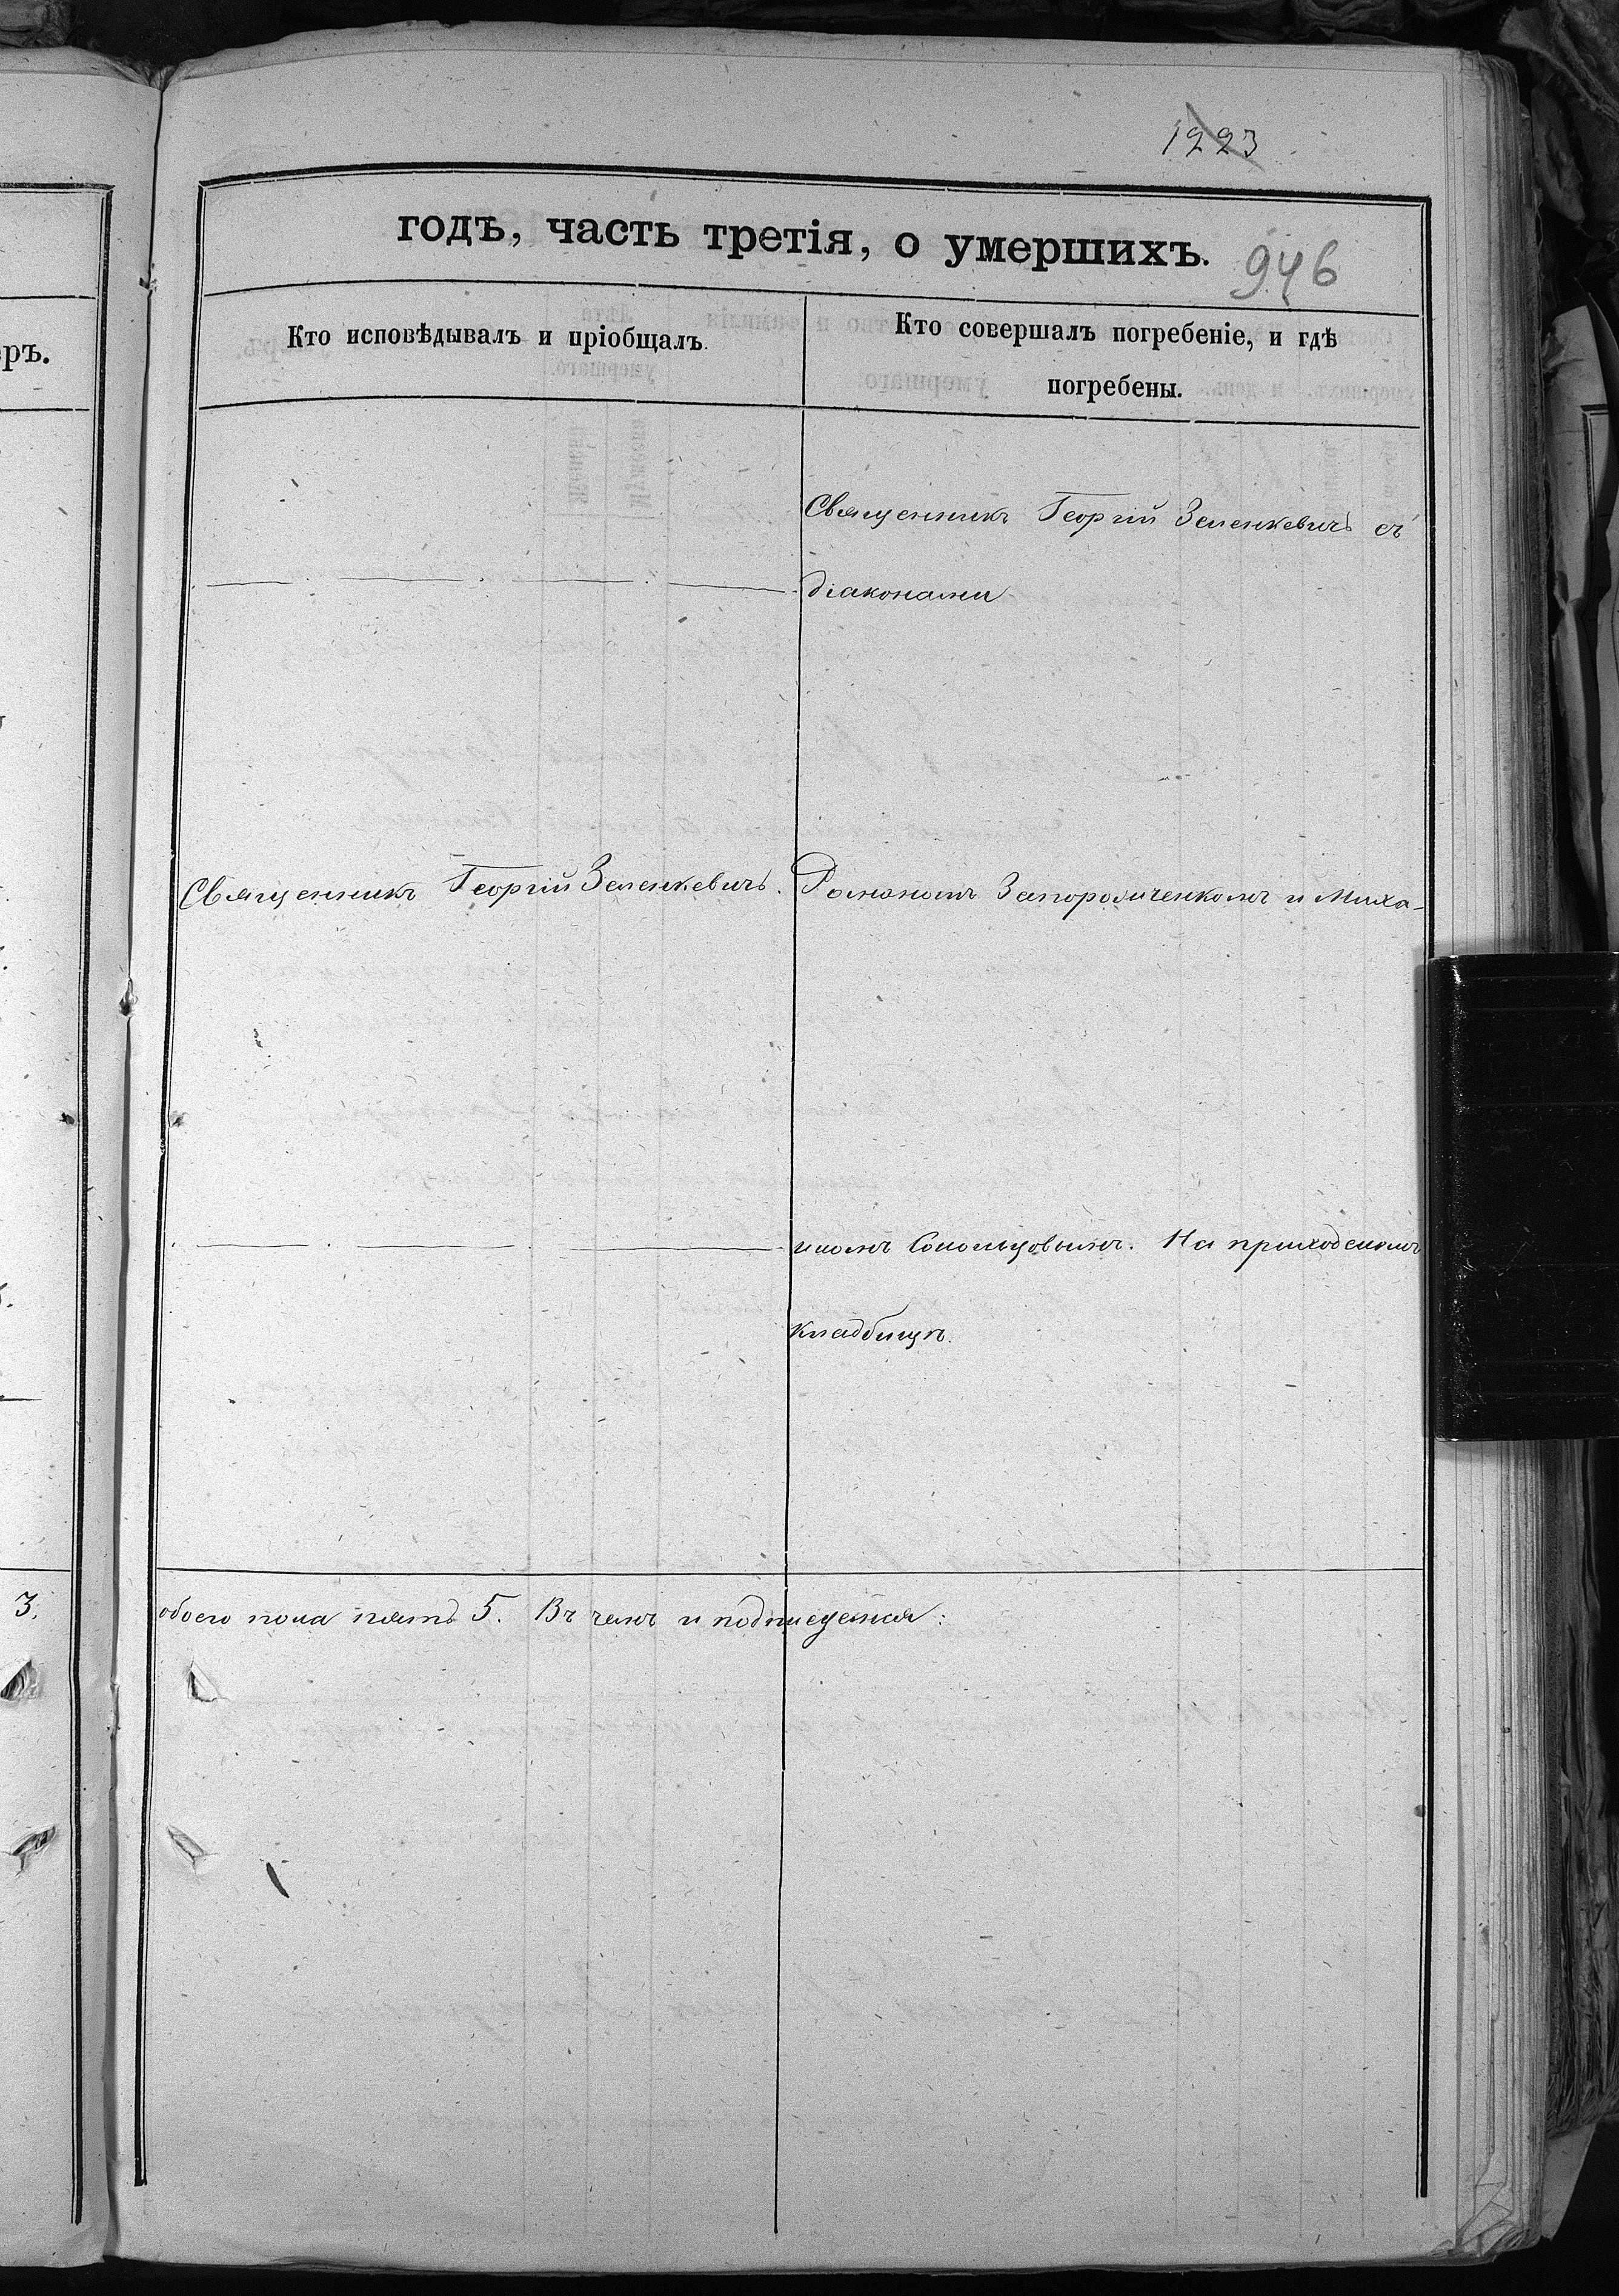 1223
годъ, часть третія, о умершихъ.
946
Кто исповѣдывалъ и пріобщалъ.
Кто совершалъ погребеніе, и гдѣ
погребены.
еръ.
Священникъ Георгій Зеленкевичъ съ
діаконами
Священникъ Георгій Зеленкевичъ.
Романомъ Запорожченкомъ и Миха-
иломъ Сокольцовымъ. На приходскомъ
кладбищѣ.
3.
обоего пола пять 5. Въ чемъ и подписуемся: